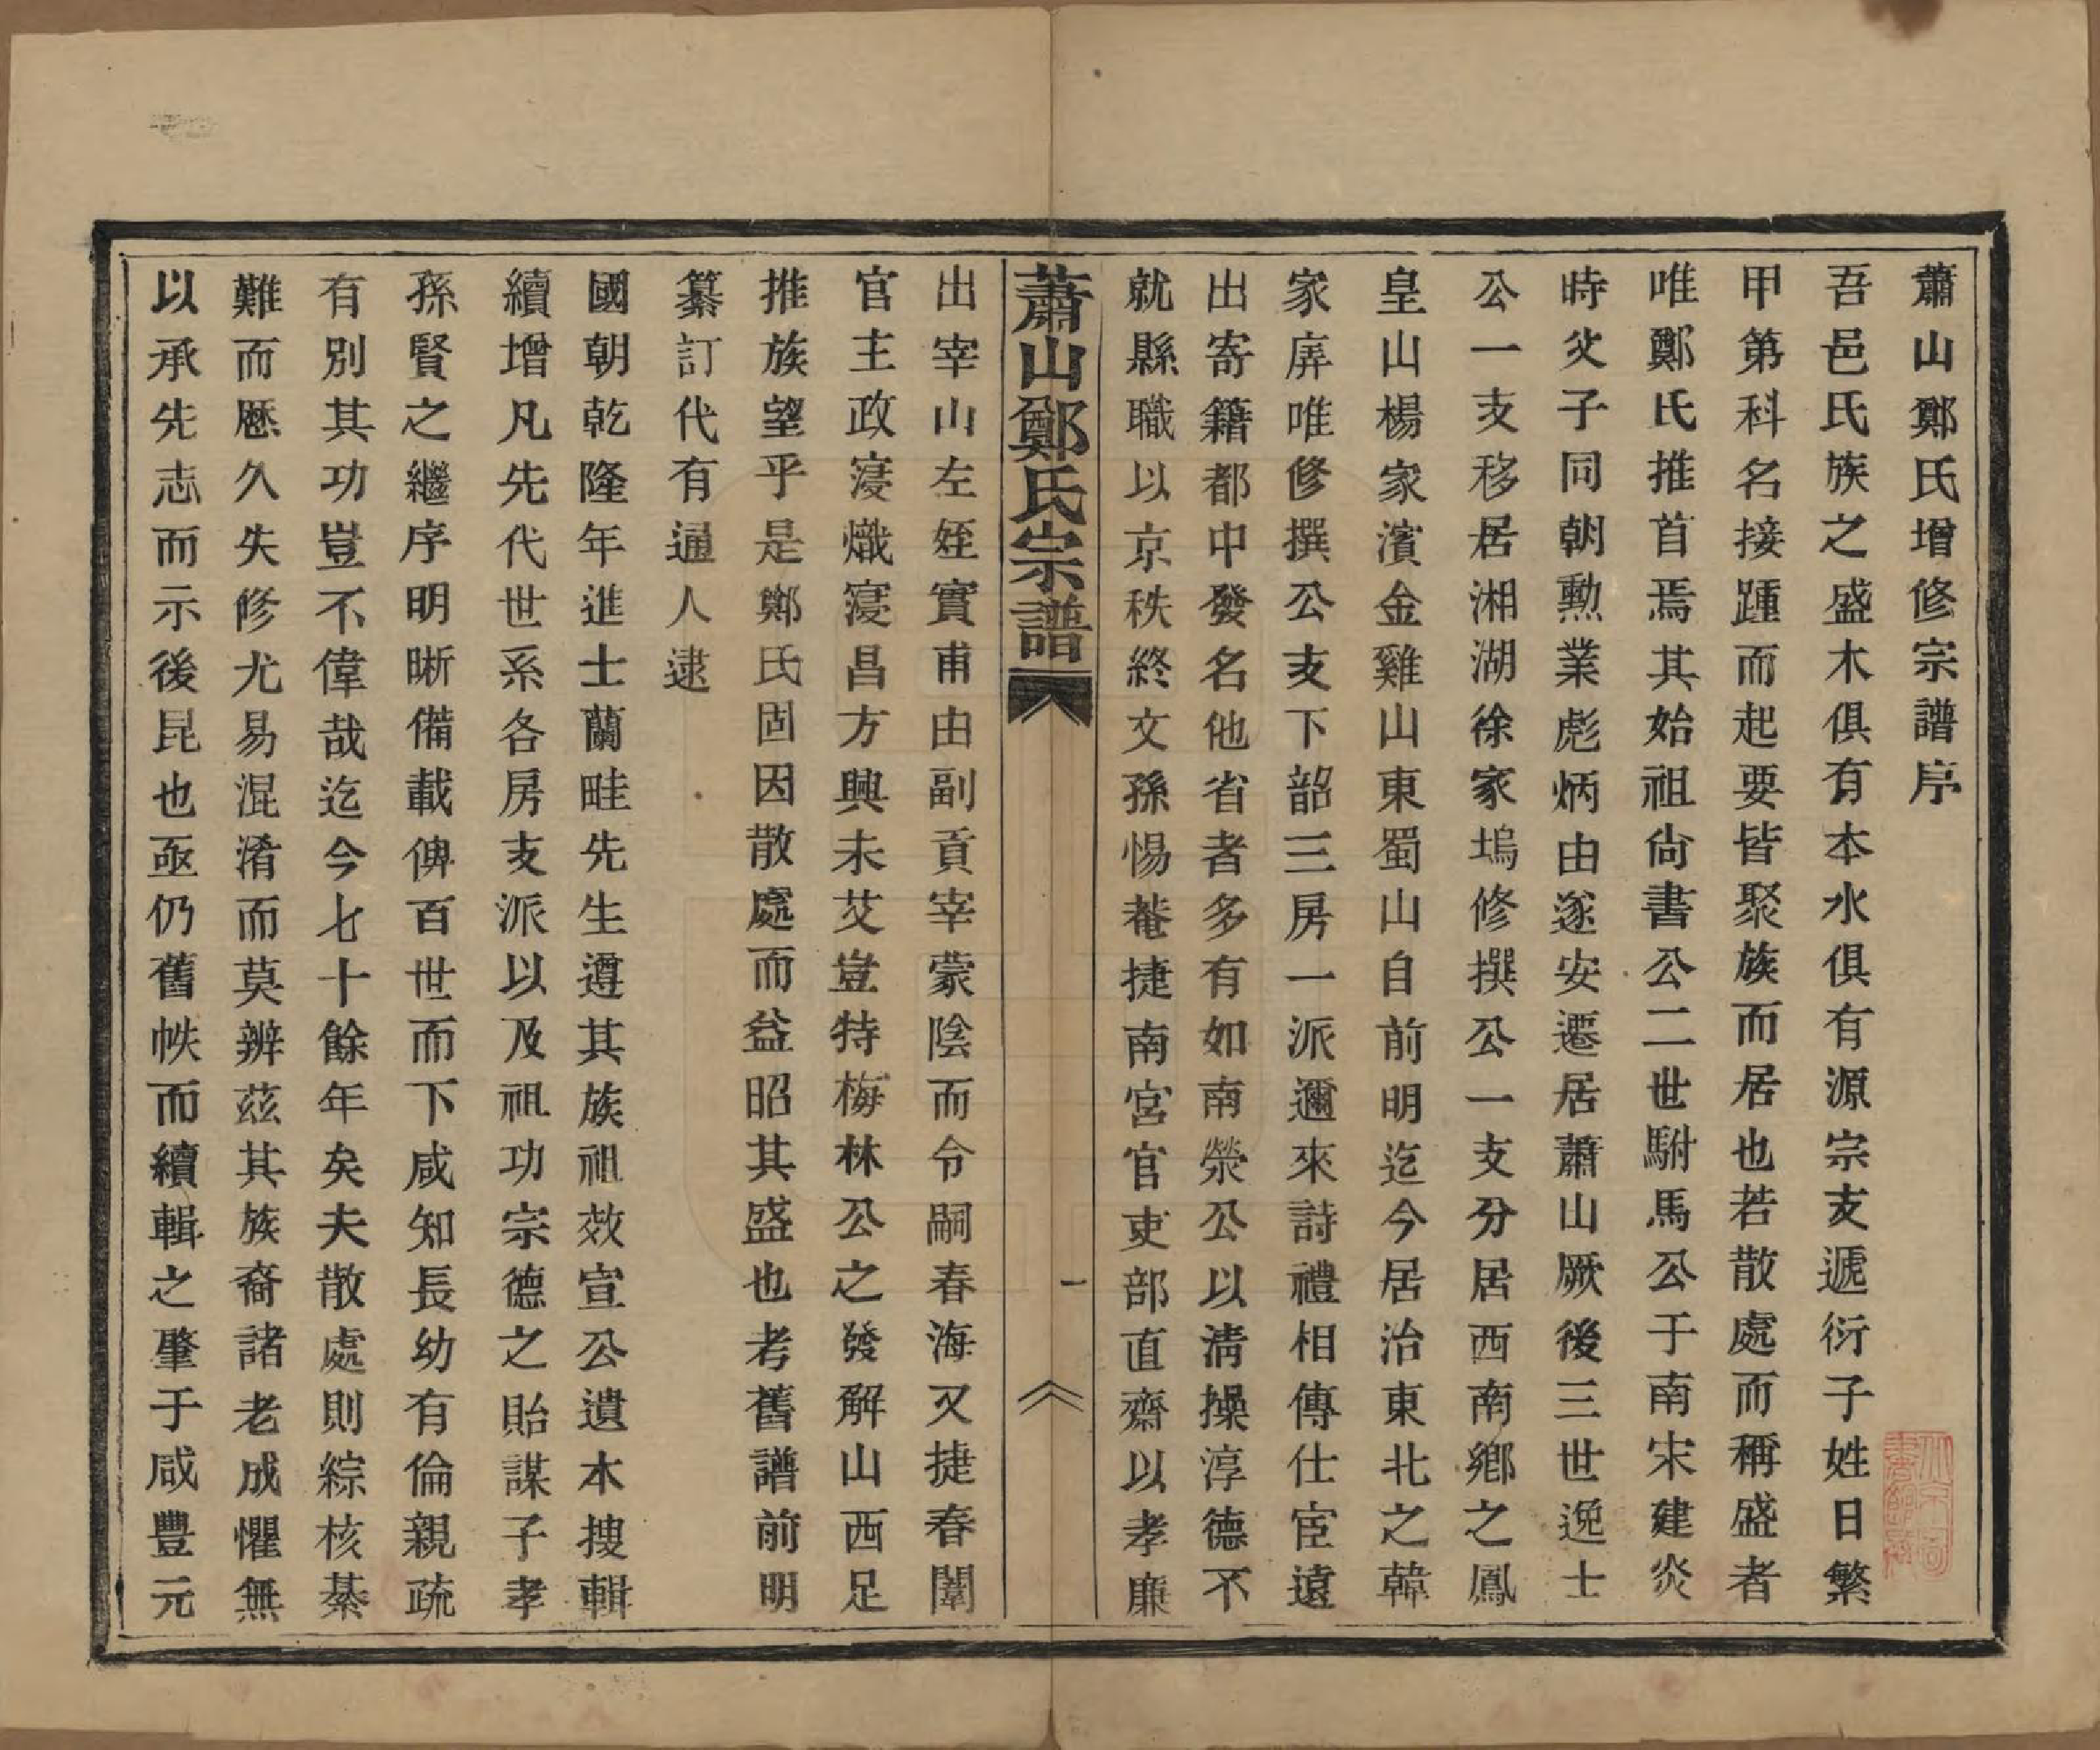 蕭山鄭氏增修宗譜序
吾邑氏族之盛木俱有本水俱有源宗支遞衍子姓日繁
甲第科名接踵而起要皆聚族而居也若散處而稱盛者
唯鄭氏推首焉其始祖尙書公二世駙馬公于南宋建炎
時父子同朝勳業彪炳由遂安遷居蕭山厥後三世逸士
公一支移居湘湖徐家塢修撰公一支分居西南鄉之鳳
皇山楊家濱金雞山東蜀山自前明迄今居治東北之韓
家㢈唯修撰公支下韶三房一派邇來詩禮相傳仕宦遠
出寄籍都中發名他省者多有如南榮公以淸操淳德不
就縣職以京秩終文孫惕菴捷南宮官吏部直齋以孝廉
蕭山鄭氏宗譜
一
出宰山左姪實甫由副貢宰蒙陰而令嗣春海又捷春闈
官主政寖熾寖昌方興未艾豈特梅林公之發解山西足
推族望乎是鄭氏固因散處而益昭其盛也考舊譜前明
纂訂代有通人逮
國朝乾隆年進士蘭畦先生遵其族祖效宣公遺本搜輯
續增凡先代世系各房支派以及祖功宗德之貽謀子孝
孫賢之繼序明晰備載俾百世而下咸知長幼有倫親疏
有別其功豈不偉哉迄今七十餘年矣夫散處則綜核綦
難而歷久失修尤易混淆而莫辨茲其族裔諸老成懼無
以承先志而示後昆也亟仍舊帙而續輯之肇于咸豐元